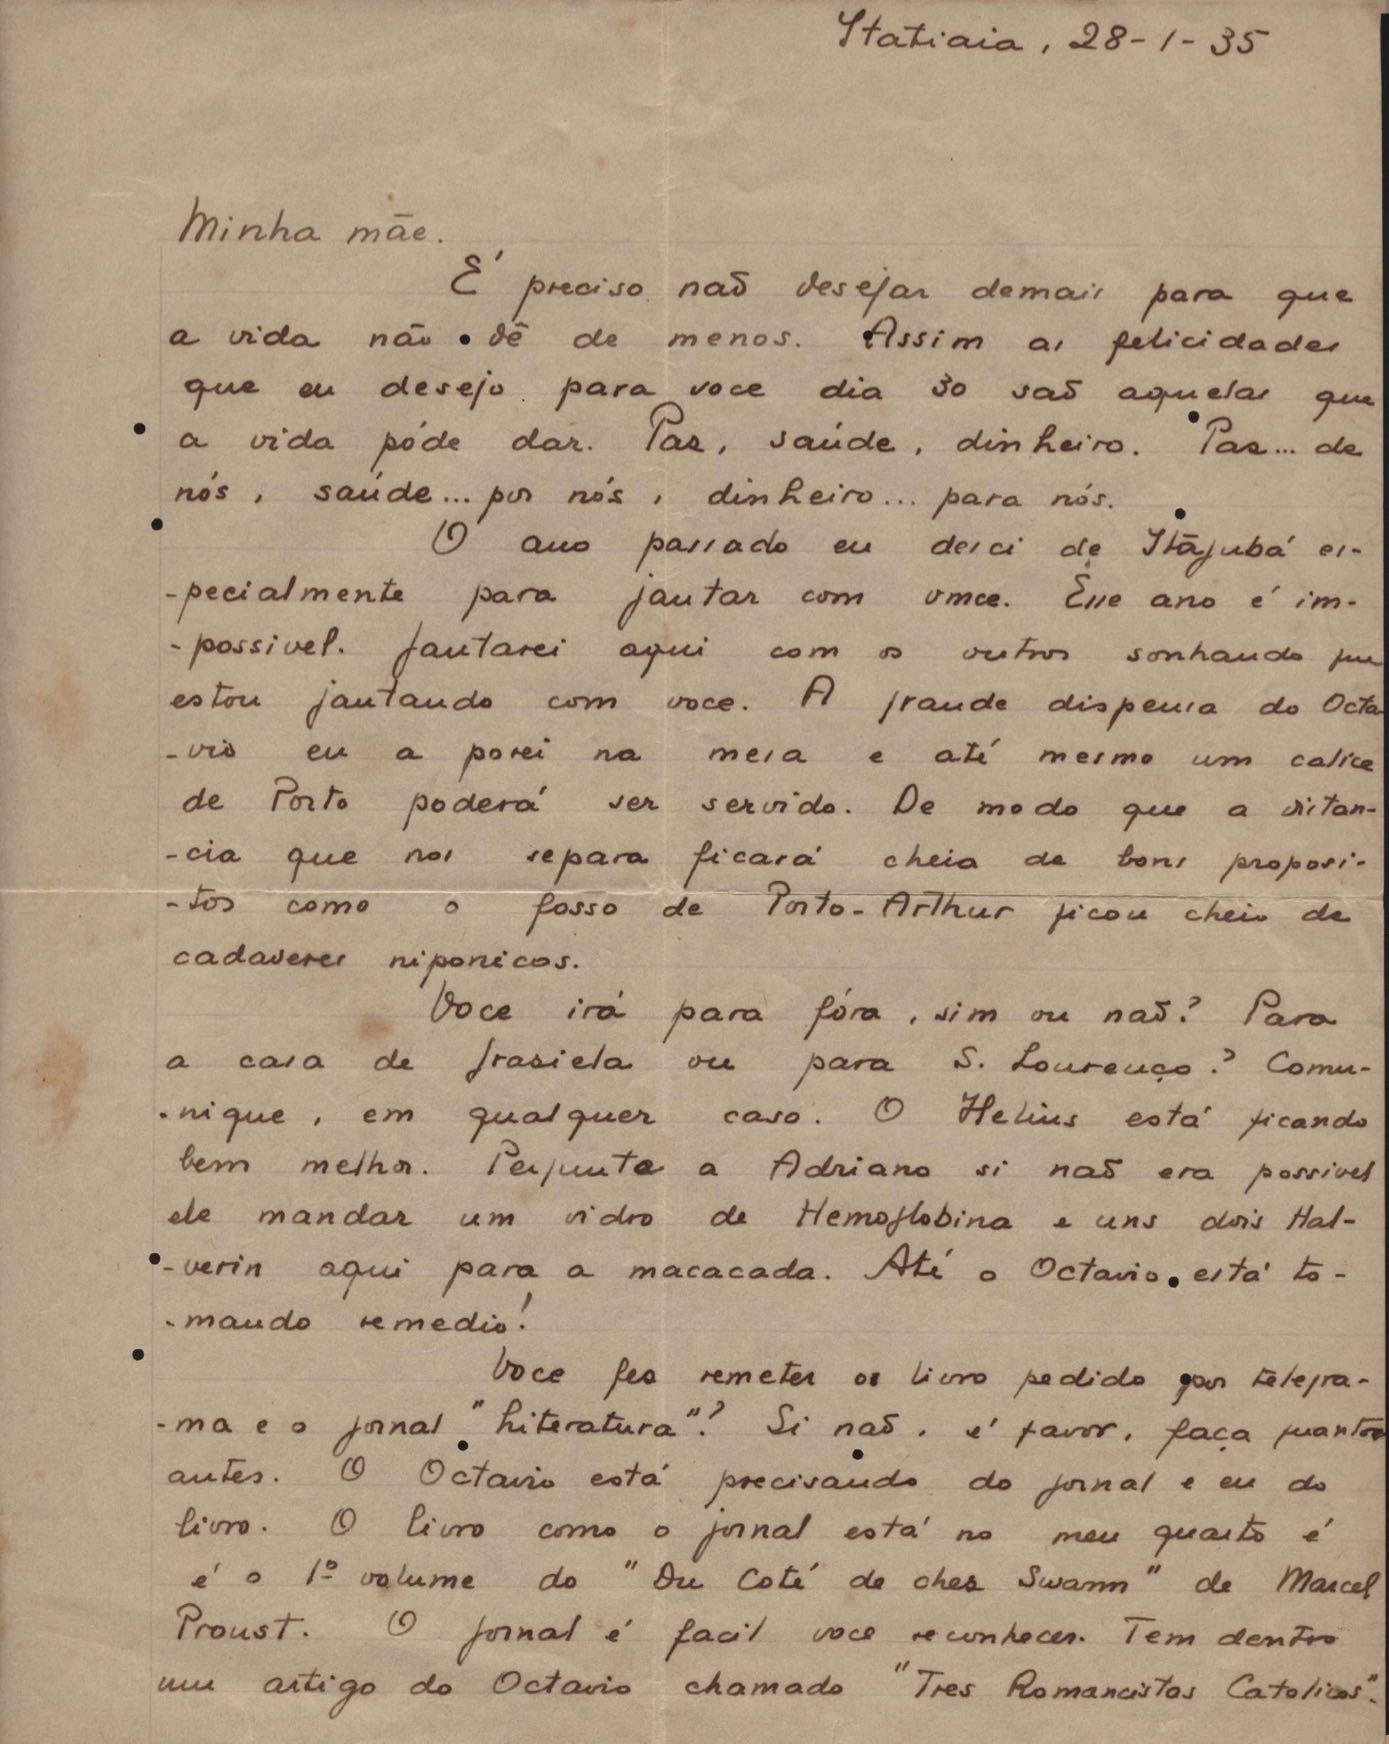 Itatiaia, 28-1-35
Minha mãe.
É preciso naõ desejar demais para que
a vida não dê de menos. Assim as felicidades
que eu desejo para voce dia 30 saõ aquelas que
a vida póde dar. Paz, saúde, dinheiro. Paz... de
nós, saúde... por nós, dinheiro... para nós.
O ano passado eu desci de Itajubá es-
-pecialmente para jantar com vmce. Êsse ano é im-
-possivel. Jantarei aqui com os outros sonhando que
estou jantando com voce. A grande dispensa do Octa
-vio eu a porei na mesa e até mesmo um calice
de Porto poderá ser servido. De modo que a distan-
-cia que nos separa ficará cheia de bons proposi-
-tos como o fosso de Porto-Arthur ficou cheio de
cadaveres niponicos.
Voce irá para fóra, sim ou naõ? Para
a casa de Graziela ou para S. Lourenço? Comu-
-nique, em qualquer caso. O Helius está ficando
bem melhor. Pergunta a Adriano si naõ era possivel
ele mandar um vidro de Hemoglobina e uns dois Hal-
-verin aqui para a macacada. Até o Octavio está to-
-mando remedio!
Voce fez remeter os livro pedido por telegra-
-ma e o jornal "Literatura"? Si naõ, é favor, faça quanto
antes. O Octavio está precisando do jornal e eu do
livro. O livro como o jornal está no meu quarto é
é o 1º volume do "Du Coté de chez Swann" de Marcel
Proust. O jornal é facil voce reconhecer. Tem dentro
um artigo do Octavio chamado "Tres Romancistas Catolicos".